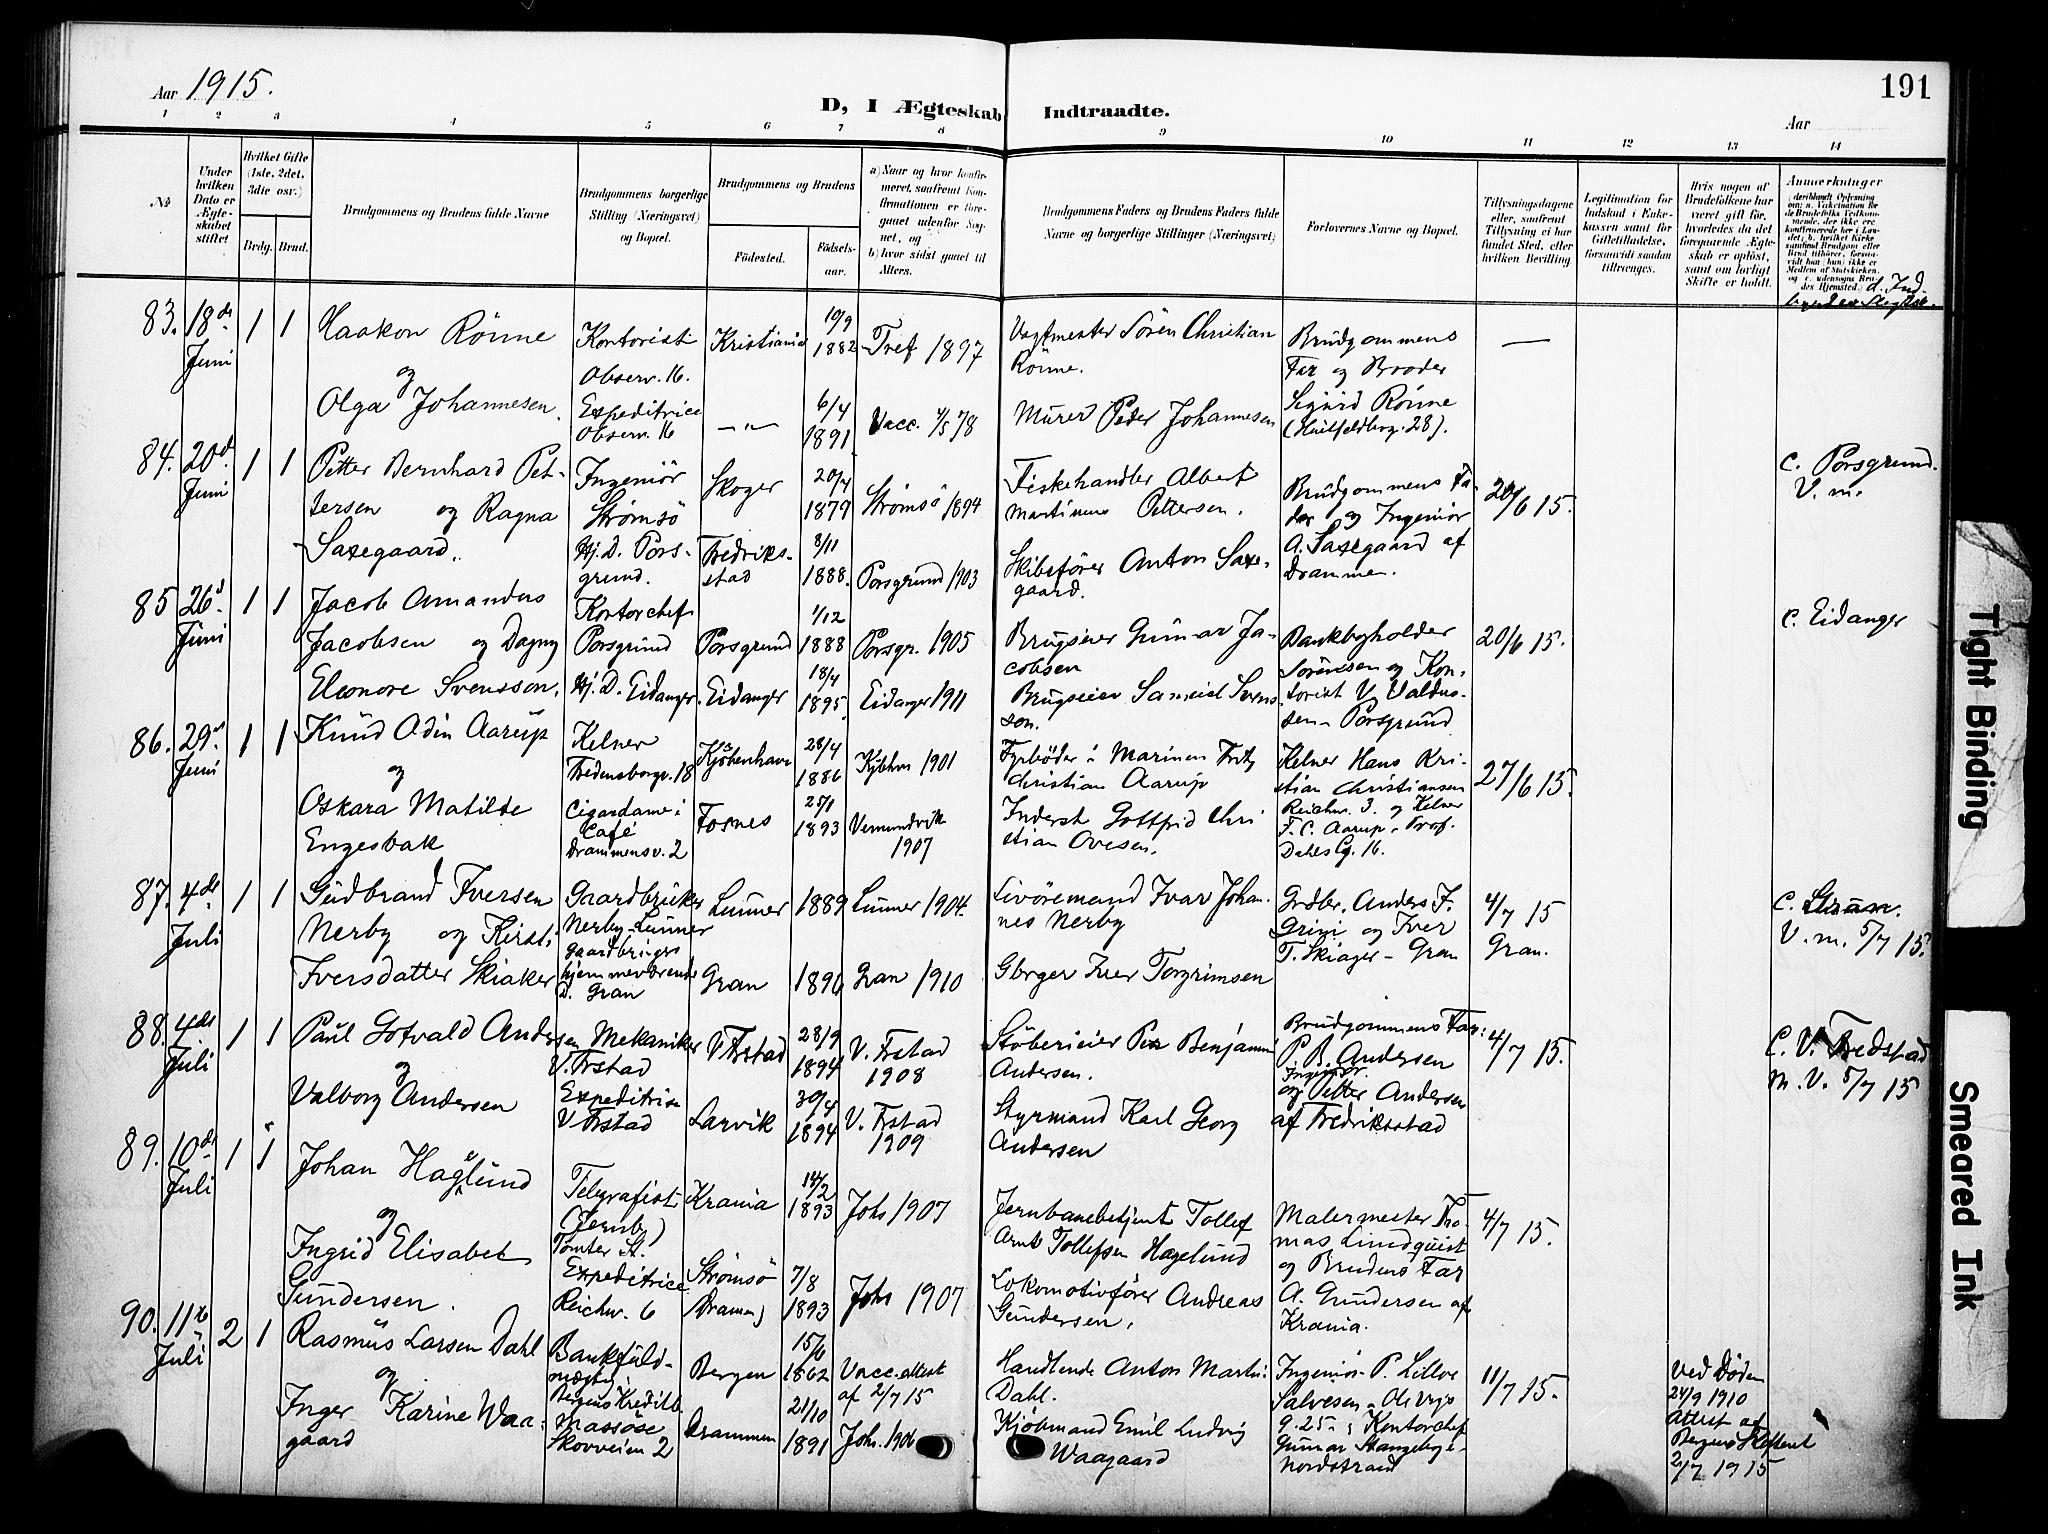 Aar 1915.
D, I Ægteskab Indtraadte.
191
Aar
1 2 3 4 5 6 7 8 9 10 11 12 13 14
No
Under hvilken Dato er Ægteskabet stiftet
Hvilket Gifte (1ste, 2det, 3die osv.)
Brdg. Brud.
Brudgommens og Brudens fulde Navne
Brudgommens borgerlige Stilling (Næringsvei) og Bopæl
Brudgommens og Brudens
Fødested.
Fødselsaar.
a) Naar og hvor konfirmeret, saafremt Konfirmationen er foregaaet udenfor Sognet, og
b) hvor sidst gaaet til Alters.
Brudgommens Faders og Brudens Faders fulde Navne og borgerlige Stillinger (Næringsvei)
Forlovernes Navne og Bopæl.
Tillysningsdagene eller, saafremt Tillysning ei har fundet Sted, efter hvilken Bevilling
Legitimation for Indskud i Enkekassen samt for Giftetilladelse, forsaavidt saadan tiltrænges.
Hvis nogen af Brudefolkene har været gift før, hvorledes da det foregaaende Ægteskab er opløst, samt om lovligt Skifte er holdt.
Anmerkninger
83. 18de Juni 1 1
Haakon Rönne
og
Olga Johannesen.
Kontorist
Observ. 16.
Expeditrice
Observ. 16
Kristiania
—"—
10/9 1882
6/4 1891
Tref 1897
Vacc. 4/5 78
Vagtmester Sören Christian
Rönne.
Murer Peder Johannesen
Brudgommens
Far og Broder
Sigurd Rönne
(Huitfeldtsg. 28).
—
84. 20de Juni 1 1
Petter Bernhard Pet-
tersen og Ragna
Saxegaard.
Ingeniør
Strømsö
Hj. D. Pors-
grund.
Skoger
Fredriks-
stad
20/4 1879
8/11 1888.
Strömsö 1894
Porsgrund 1903
Fiskehandler Albert
Martinius Pettersen.
Skibsfører Anton Saxe-
gaard.
Brudgommens Fa-
der og Ingeniør
A. Saxegaard af
Drammen.
20/6 15.
C. Porsgrund.
V. m.
85 26d Juni 1 1
Jacob Amandus
Jacobsen og Dagny
Eleonore Svensson,
Kontorchef
Porsgrund
Hj. D. Eidanger.
Porsgrund
Eidanger
1/12 1888
18/4 1895.
Porsgr. 1905
Eidanger 1911
Brugseier Gunnar Ja-
cobsen
Brugseier Samuel Svens
son.
Bankbogholder
Sörensen og Kon-
torist V. Valdus-
sen - Porsgrund
20/6 15.
C. Eidanger
86. 29d Juni 1 1
Knud Odin Aarup
og
Oskara Matilde
Engesbak
Kelner
Fredensborgv. 18
Cigardame i
Café
Drammensv. 2
Kjöbenhavn
Fosnes
28/4 1886
25/1 1893
Kjbhvn 1901
Vemundvik
1907
Fyrböder i Marinen Fritz
Christian Aarup
Inderst Gottfrid Chri
stian Ovesen.
Kelner Hans Kri-
stian Christiansen
Reichw. 3. og Kelner
F. C. Aarup, Prof.
Dahls G. 16.
27/6 15.
87. 4de Juli 1 1
Gudbrand Iversen
Nerby og Kirsti
Iversdatter Skiaker
Gaardbruker
Nerby-Lunner
gaardbrugs
hjemmeværende
D. Gran
Lunner
Gran
1889
1890
Lunner 1904.
Gran 1910
Livöremand Ivar Johan-
nes Nerby
Gbrger Iver Torgrimsen
Grdbr. Anders F.
Grini og Iver
T. Skiager - Gran
4/7 15
Gran.
C. Gran.
V. m. 5/7 15.
88. 4de Juli 1 1
Paul Gotvald Andersen
og
Valborg Andersen
Mekaniker
V. Frstad
Expeditrice
V. Frstad
V Frstad
Larvik
28/9 1894
30/4 1894
V. Frstad
1908
V. Frstad
1909
Stöberieier Per Benjamin
Andersen.
Styrmand Karl Georg
Andersen
Brudgommens Far:
P. B. Andersen
og Petter Andersen
af Fredriksstad
4/7 15.
C. V. Fredstad
M. V. 5/7 15
89. 10de Juli 1 1
Johan Hagelund
og
Ingrid Elisabet
Gundersen.
Telegrafist
(Jernb.)
Tomter St.
Expeditrice
Reichw. 6
Krania
Strømsö
(Dramen)
14/2 1893
7/8 1893
Johs 1907
Johs 1907
Jernbanebetjent Tollef
Arnt Tollefsen Hagelund
Lokomotivfører Andreas
Gundersen.
Malermester Tho-
mas Lindquist
og Brudens Far
A. Gundersen af
Krania.
4/7 15.
90. 11te Juli 2 1
Rasmus Larsen Dahl
og
Inger Karine Waa-
gaard
Bankfuld-
mægtig
Bergens Kreditb.
Massöse
Skovveien 2
Bergen
Drammen
1862
21/10 1891
Vacc. attest
af 2/7 15
Johs. 1906
Handlende Anton Martin
Dahl.
Kjöbmand Emil Ludvig
Waagaard
Ingeniör P. Lilloe
Salvesen
g. 25 Kontorchef
Gunnar Stangeby
Nordstrand
11/7 15.
Ved Döden
24/9 1910
Attest af
Bergens Skifteret
2/7 1915
Tight Binding
Smeared Ink